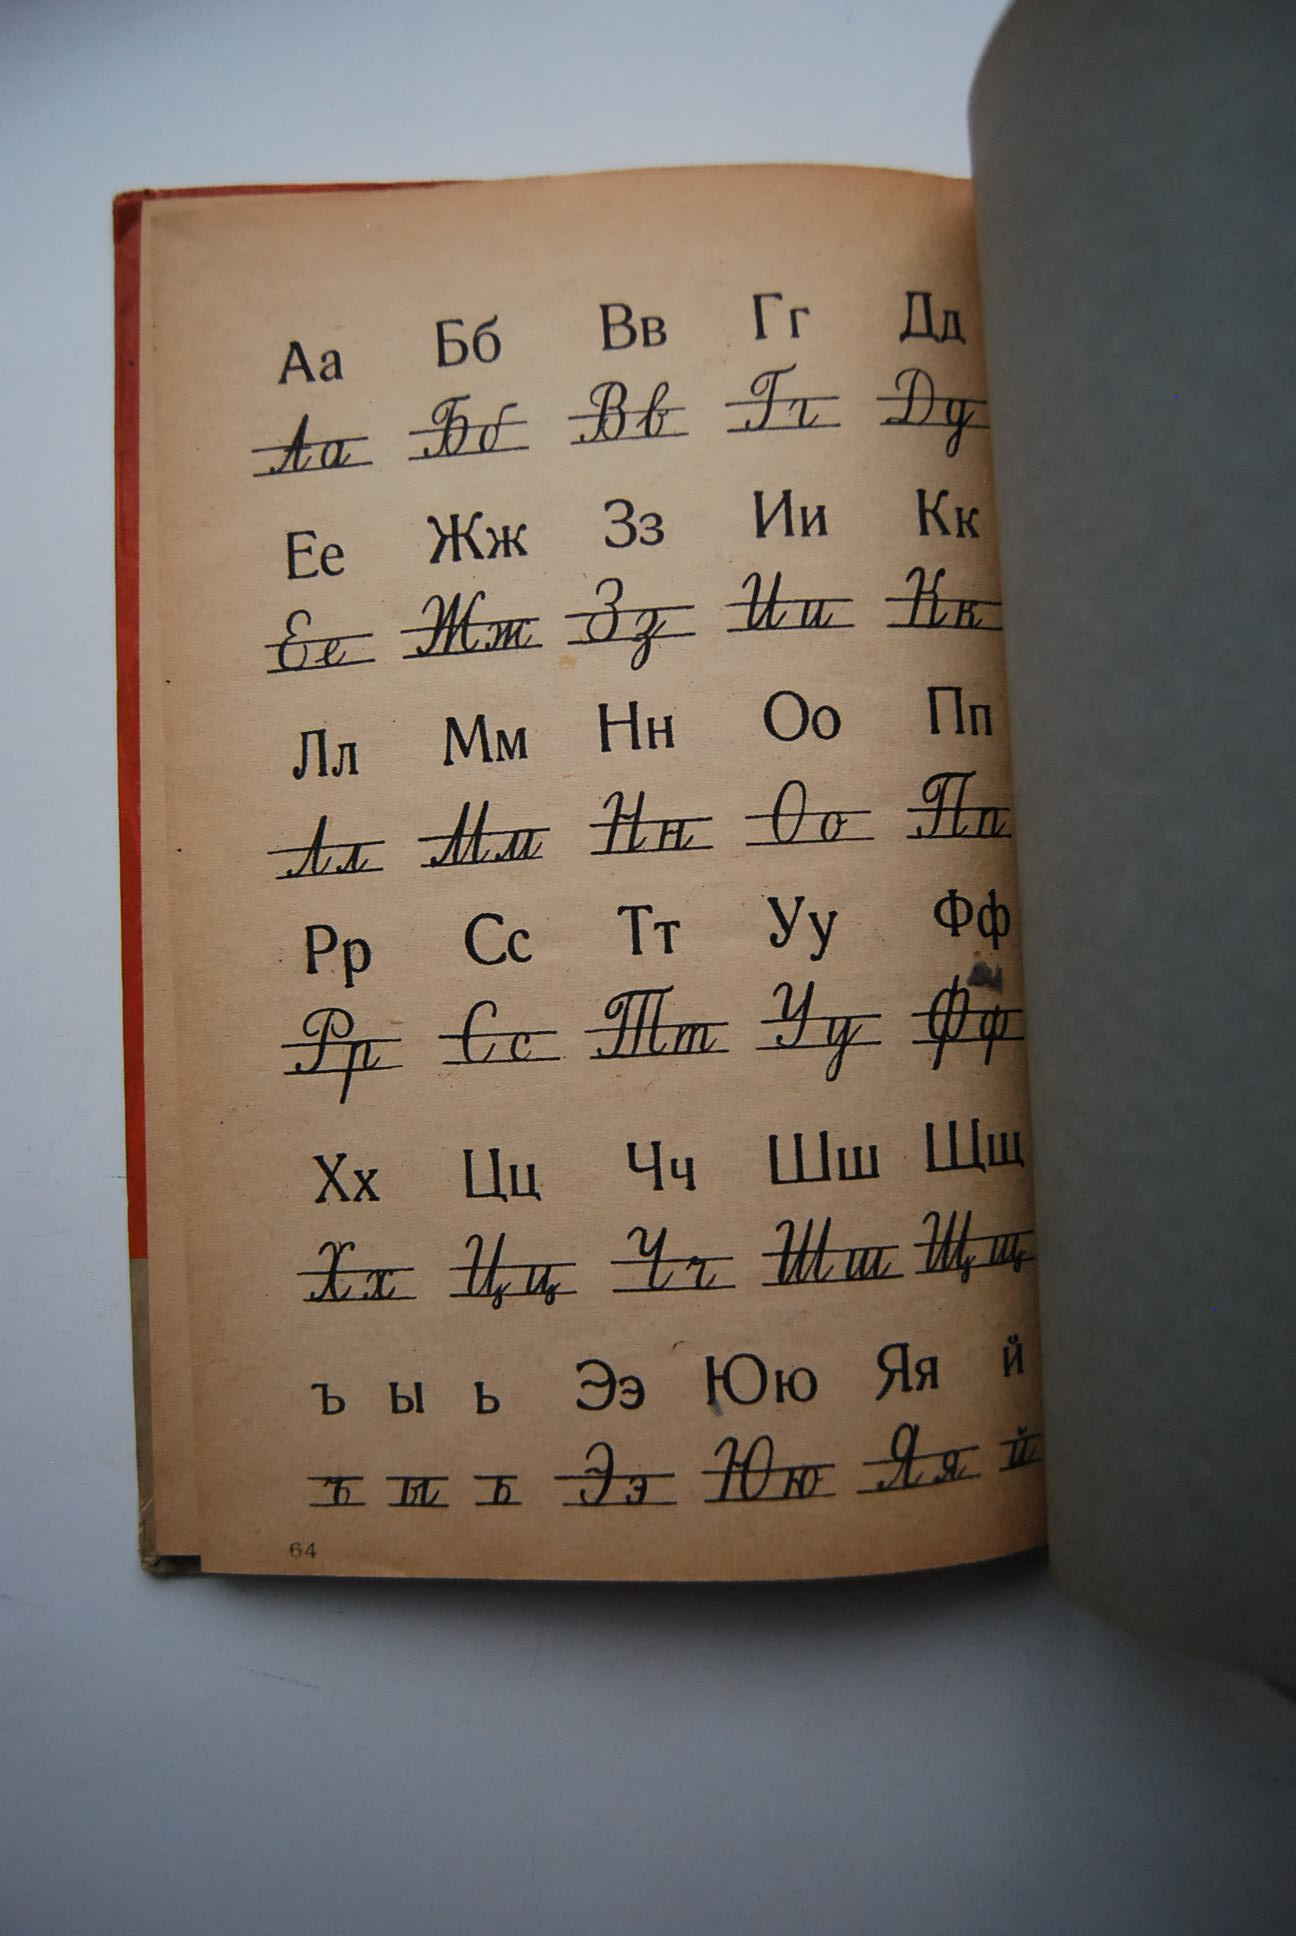 Аа Бб Вв Гг Дд
Аа Бб Вв Гг Дд
Ее Жж Зз Ии Кк
Ее Жж Зз Ии Кк
Лл Мм Нн Оо Пп
Лл Мм Нн Оо Пп
Рр Сс Тт Уу Фф
Рр Сс Тт Уу Фф
Хх Цц Чч Шш Щщ
Хх Цц Чч Шш Щщ
ъ ы ь Ээ Юю Яя й
ъ ы ь Ээ Юю Яя й
64